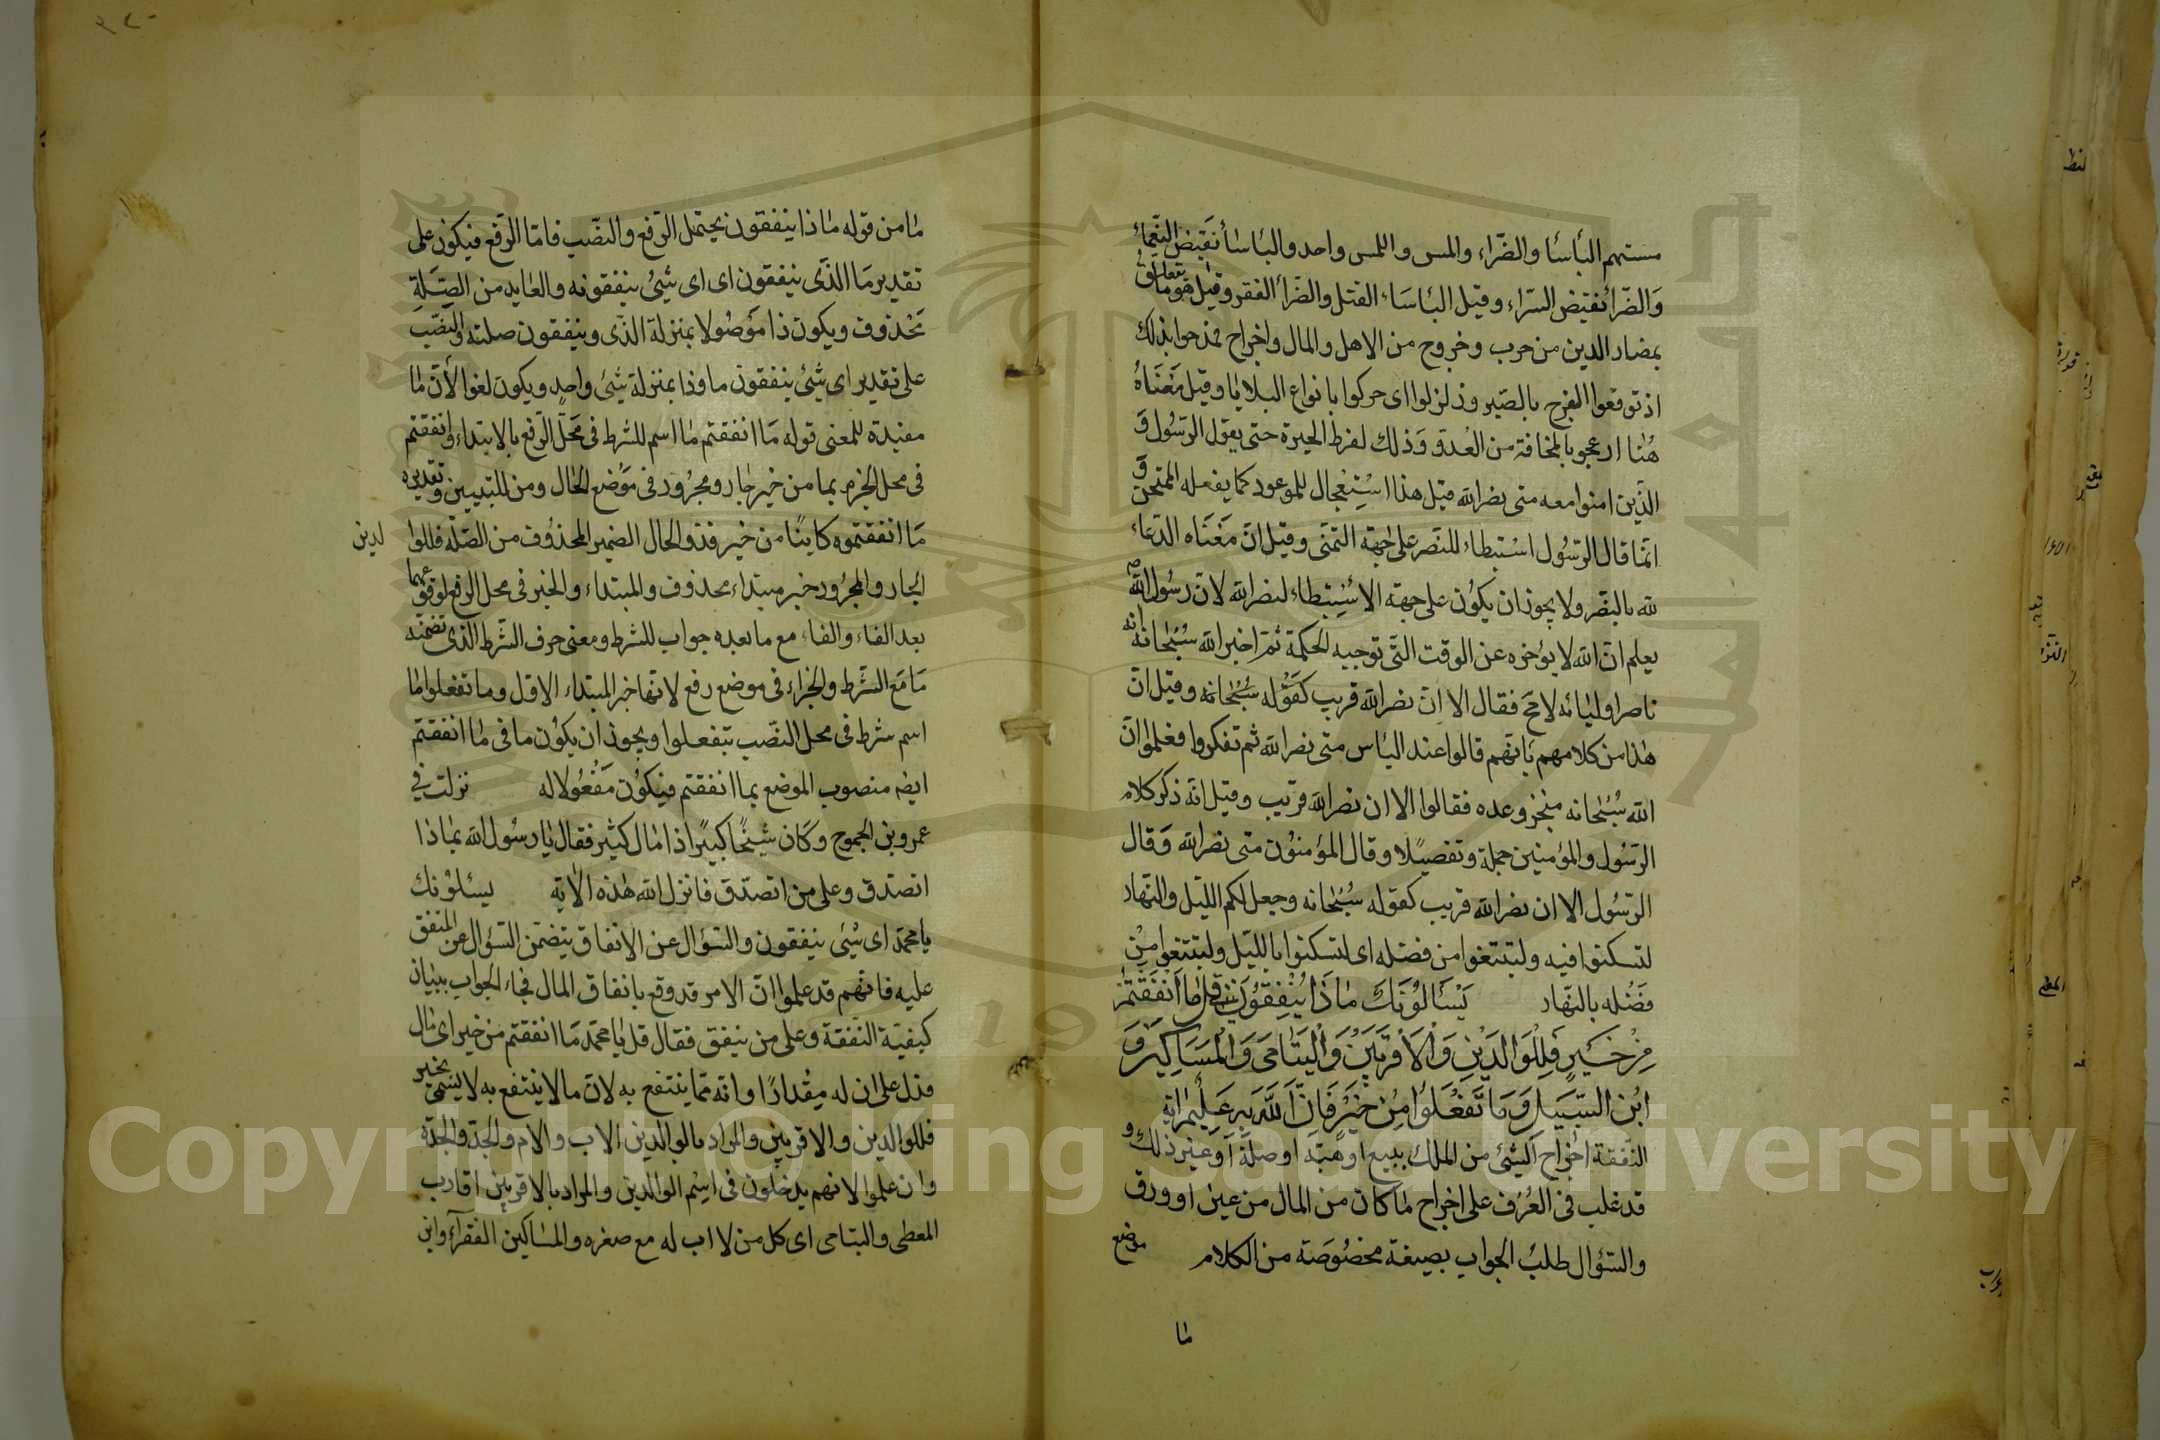 مستهم البأسا والضّراء والمس واللمس واحد والباساأ نقيض النّعماء
وَالضّرأ نقيض السّراء وقيل الباسَاء القتل والضّرأ الفقر وقيل هو ما تعلق
بمضار الدين من حرب وخروج من الاهل والمال واخراج فمدحوا بذلك
اذ توقعوا الفرج بالصّبر وزلزلوا اى حركوا بانواع البلايا وقيل مَعْنَاهُ
هُنا ازعجو بالمخافة من العُدوّ وَذلك لفرط الحيرة حتى يقول الرّسُول وَ
الذّين امنوا معه متى نصر الله قيل هذا اسْتِعْجال للموعود كما يفعله الممتحن وَ
انّما قال الرّسُول اسْتبطاء للنّصر على جهة التمنّى وقيل انّ مَعْنَاه الدّعاء
لله بالنصّر ولا يجوز ان يكوُن على جهة الاسْتِبْطاء لنصر الله لانّ رسُول الله صم
يعلم انّ الله لا يؤخره عن الوقت التّى توجبه الحكمة ثم اخبر الله سُبْحانه انه
ناصر اوليائه لا محَ فقال الا انّ نصر الله قريب كقَوْله سُبْحانه وقيل انّ
هٰذا من كلامهم بَانّهم قالوا عند اليأس متى نصر الله ثم تفكروا فعلموا انّ
الله سُبْحانه منجز وعده فقالوا الا ان نصر الله قريب وقيل انّه ذكر كلام
الرّسُول والمؤمنين جملة وتفصيلا وقال المؤمنوُن متى نصر الله وَقال
الرّسُول الا ان نصر الله قريب كقوله سُبْحانه وجعل لكم اللّيل والنّهار
لتسكنوا فيه ولتبتغوا من فضله اى لتسكنوا باللّيل ولتبتغوا مِنْ
فَضْله بالنّهار يَسْأَلوُنَكَ مٰاذَا يُنْفِقُوُنَ قُلْ مٰا اَنْفَقْتُمْ
مِنْ خَيْرٍ فَلِلْوٰالِدَيْنِ وَالْاَقْرَبينَ وَالْيَتامىٰ وَالْمَسَاكينِ وَ
ابْنِ السَّبيلِ وَمَا تَفْعَلُوا مِنْ خَيْرٍ فَاِنَّ اللّٰهَ بِهِ عَليمٌ اية
النّفقة اخراج الشّئ من الملك ببيع اوْ هبَة اوصلَة اَوْ غير ذلك و
قد غلب فى العُرْف على اخراج مٰا كان من المال من عين او ورق
والسّؤال طلبُ الجواب بصيغة مخصُوصَة من الكلام موضع
مٰا
مٰا من قوله مٰا ذا ينفقون يحتمل الرّفع والنصّب فامّا الرّفع فيكون على
تقدير مَا الذّى ينفقون اى اى شئ ينفقونه والعٰايد من الصّلَةِ
محَذوف ويكون ذا مَوْصُولا بمنزلة الذّى وينفقون صلته والنصّب
على تقدير اى شئ ينفقون ما وذا بمنزلة شئ واحد ويكون لغوا لأنّ مٰا
مفيدة للمعنى قوله مَا انفقتم مٰا اسم للشرط فى مَحَلّ الرّفع بالابتداء وانفقتم
فى محل الجزم بما من خير جار ومجرُور فى مَوْضع الحٰال ومن للتبيين وتقديره
مَا انفقتموه كاينًا من خير فذو الحال الضمير المحذوُف من الصّلة فللوا لدين
الجار والمجرُور خبر مبتداء محذوف والمبتداء والخبر فى محل الرفع لوقوعهما
بعد الفاء والفاء مع ما بعده جواب للشرط ومعنى حرف الشّرط الذى تضمّنه
مَا مَع الشّرط والجزاء فى موضع رفع لانّها خبر المبتداء الاول وما تفعلوا مٰا
اسم شرط فى محل النصّب بتفعلوا ويجوز ان يكوُن ما فى مٰا انفقتم
ايضا منصوب الموضع بما انفقتم فيكوُن مَفْعُولا له نزلت في
عمرو بن الجموح وكان شيْخًا كبيرًا ذا مٰال كثير فقال يٰا رسُول الله بمٰاذا
اتصدّق وعلى من اتصدّق فانزل الله هٰذه الاٰية يسئلوُنك
يا محمّد اى شئ ينفقون والسّؤال عن الانفاق يتضمّن السّؤال عن المنفق
عليه فانّهم قد علموا انّ الامر قد وقع بانفاق المال فجاء الجواب ببيٰان
كيفيّة النّفقة وعلى من ينفق فقال قل يٰا محمّد مَا انفقتم من خير اى مٰال
فدل على ان له مِقْدارًا وانه ممّا ينتفع به لانّ مالا ينتفع به لا يسمّى بخير
فللوالدين والاقربين والمراد بالوالدين الاب والام والجدّ والجدّة
وان علوا لانهم يدخلون فى اسْم الوالدين والمراد بالاقربين اقارب
المعطى واليتامى اى كل من لا اب له مع صغره والمسٰاكين الفقرآء وابن
Copyright © King Saud University